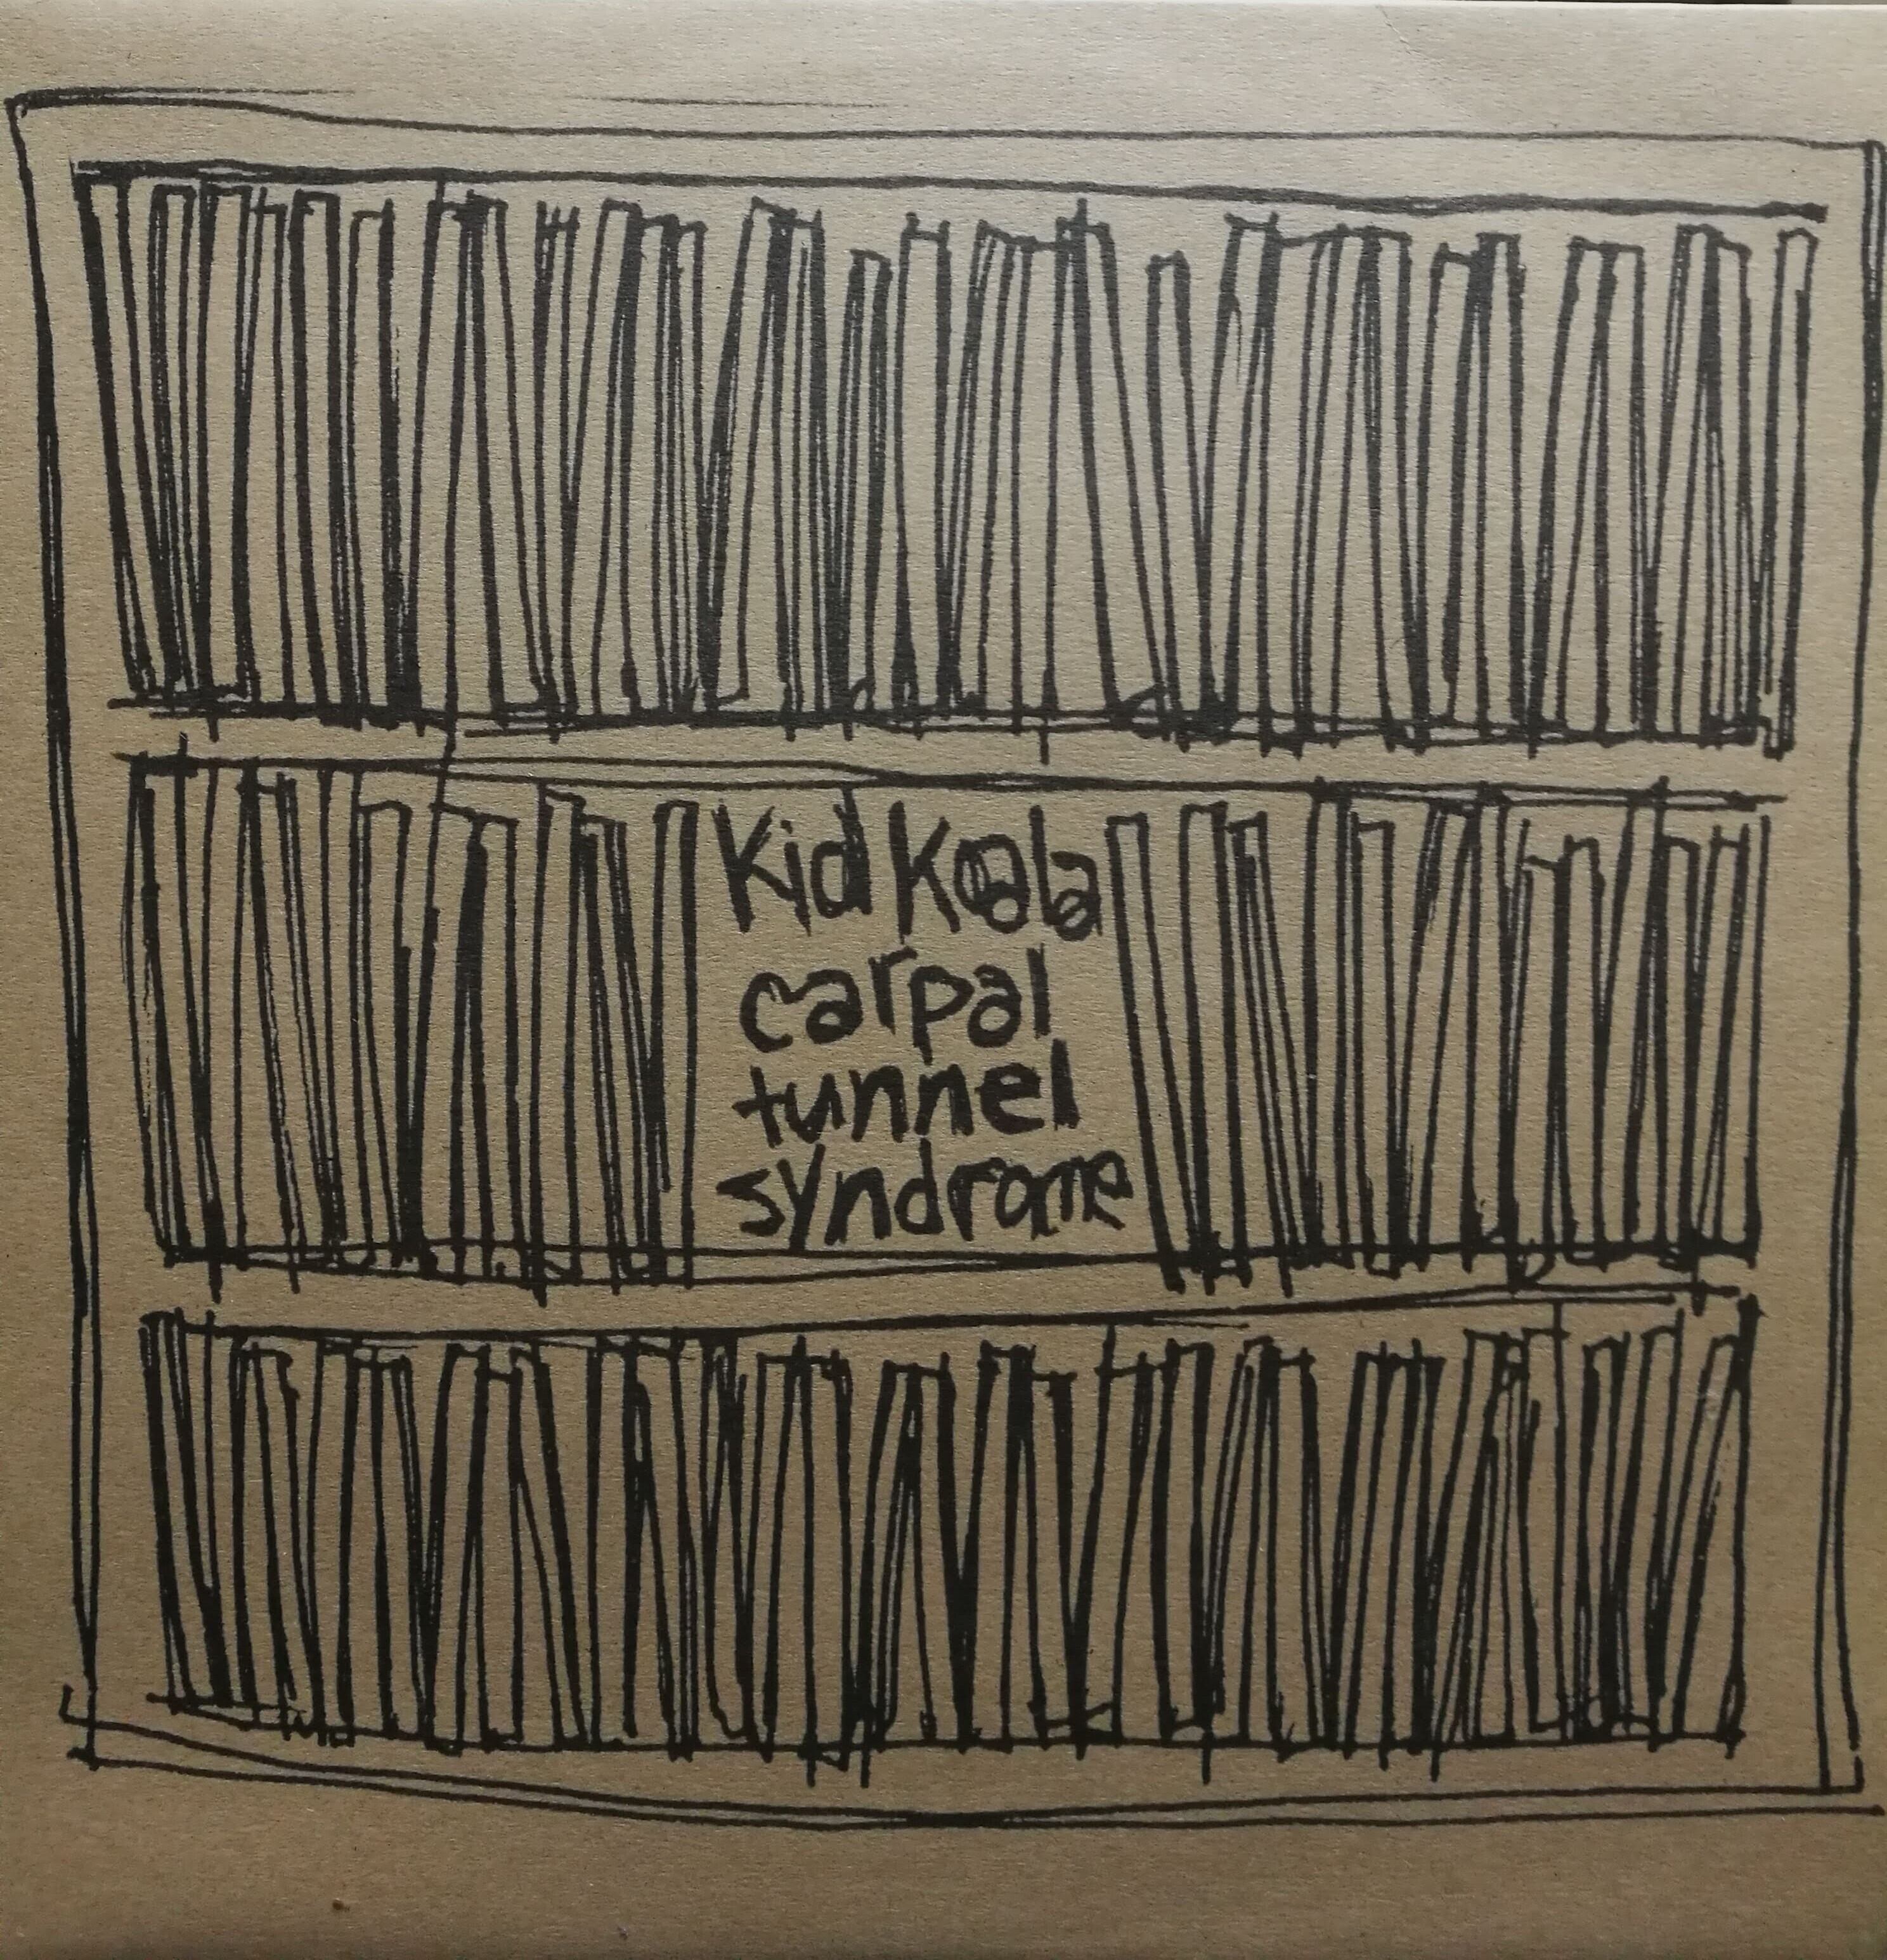 Kid Koala
carpal
tunnel
syndrome